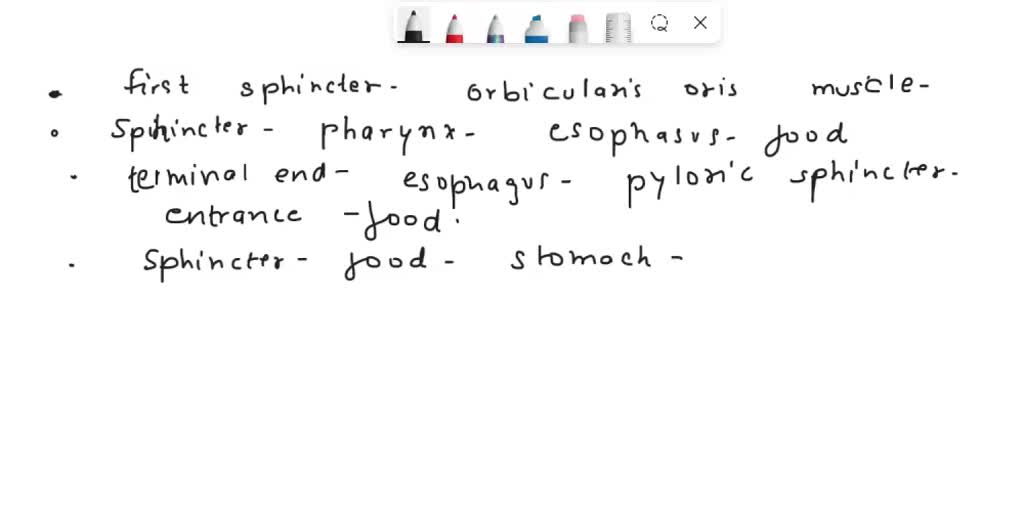 • first sphincter - orbicularis oris muscle -
• sphincter - pharynx - esophasus - food
• terminal end - esophagus - pyloric sphincter -
entrance - food.
• sphincter - food - stomach -